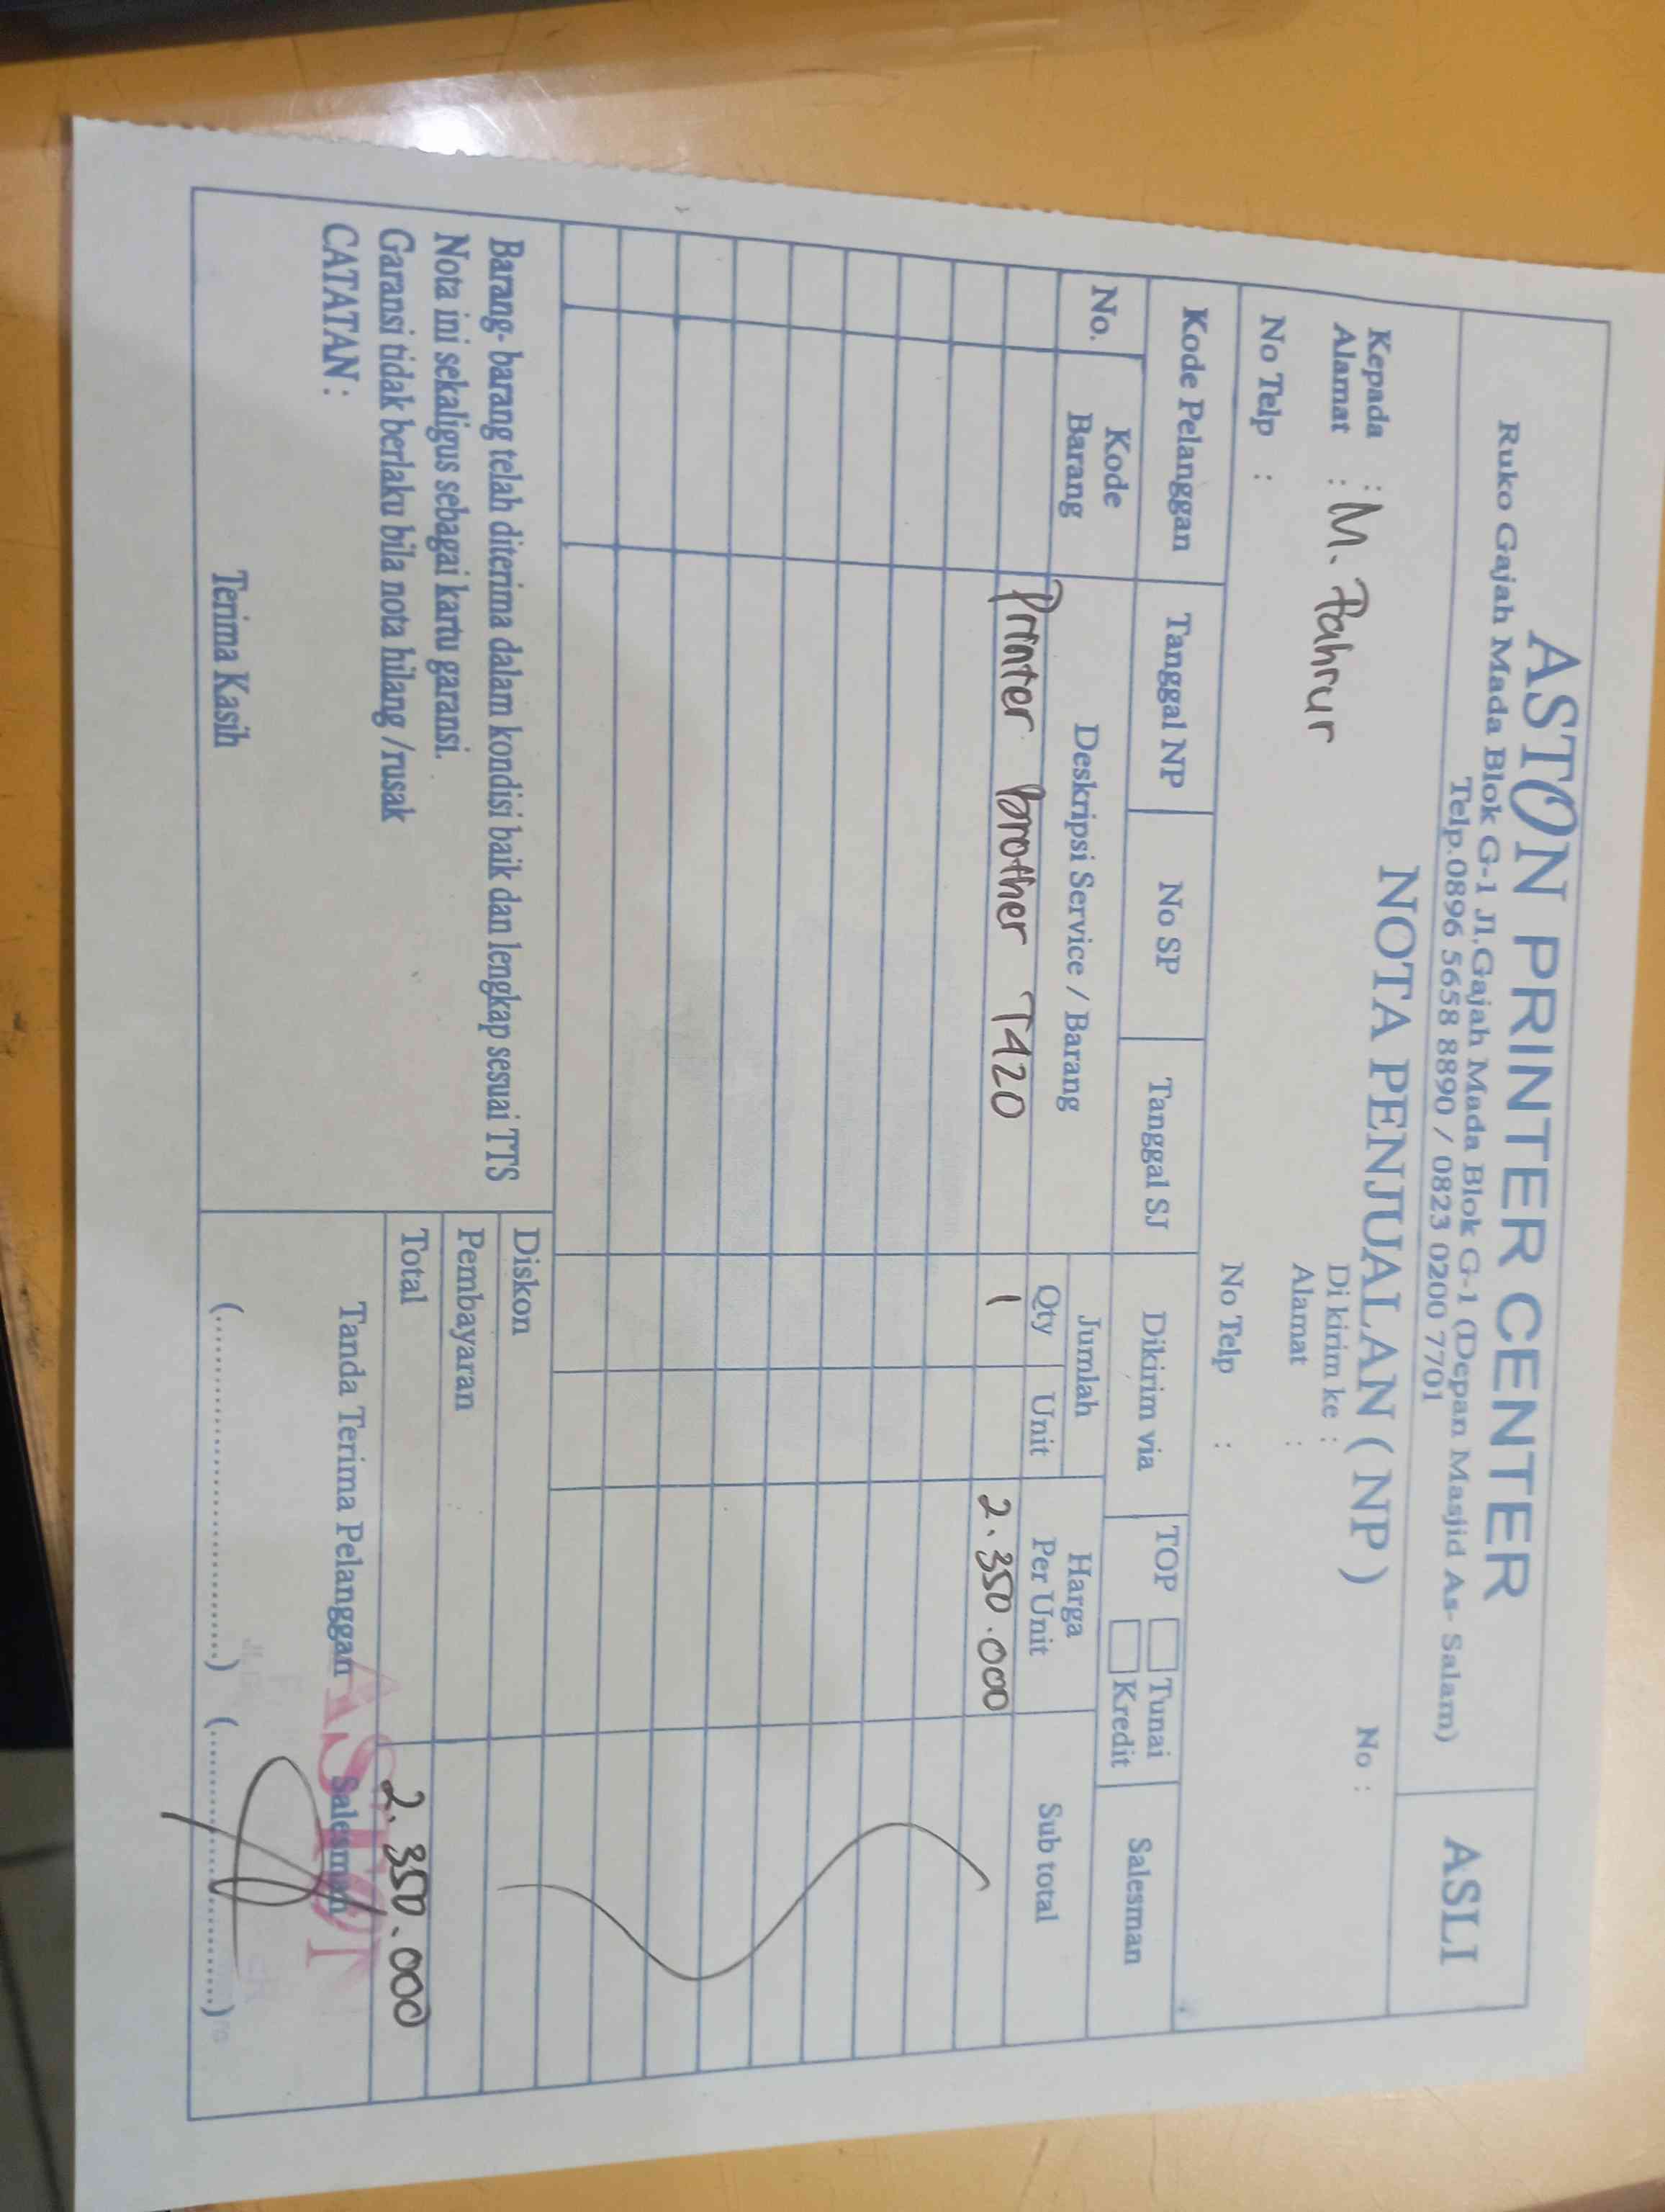 ASTON PRINTER CENTER
ASLI
Ruko Gajah Mada Blok G-1 Jl.Gajah Mada Blok G-1 (Depan Masjid As- Salam)
Telp.0896 5658 8890 / 0823 0200 7701
NOTA PENJUALAN ( NP )
No :
Kepada : M. Pahrur
Alamat :
No Telp :
Di kirim ke :
Alamat :
No Telp :
Kode Pelanggan Tanggal NP No SP Tanggal SJ Dikirim via TOP Tunai Kredit Salesman
No. Kode Barang Deskripsi Service / Barang Jumlah Qty Unit Harga Per Unit Sub total
Printer brother T420 1 2.350.000
Barang- barang telah diterima dalam kondisi baik dan lengkap sesuai TTS
Nota ini sekaligus sebagai kartu garansi.
Garansi tidak berlaku bila nota hilang /rusak
CATATAN :
Terima Kasih
Diskon
Pembayaran
Total 2.350.000
Tanda Terima Pelanggan Salesman
ASTON
(..............................) (..............................)